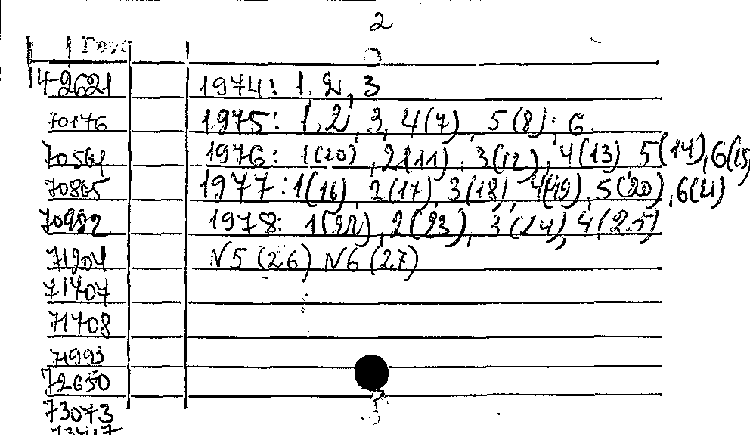 2
42621 1974: 1, 2, 3
70176 1975: 1, 2, 3, 4(7), 5(8); 6
70564 1976: 1(10), 2(11), 3(12), 4(13) 5(14), 6(15)
70865 1977: 1(16), 2(17), 3(18), 4(19), 5(20), 6(21)
70982 1978: 1(22), 2(23), 3(24), 4(25)
71204 №5(26) №6(27)
71407
71708
71993
72650
73073